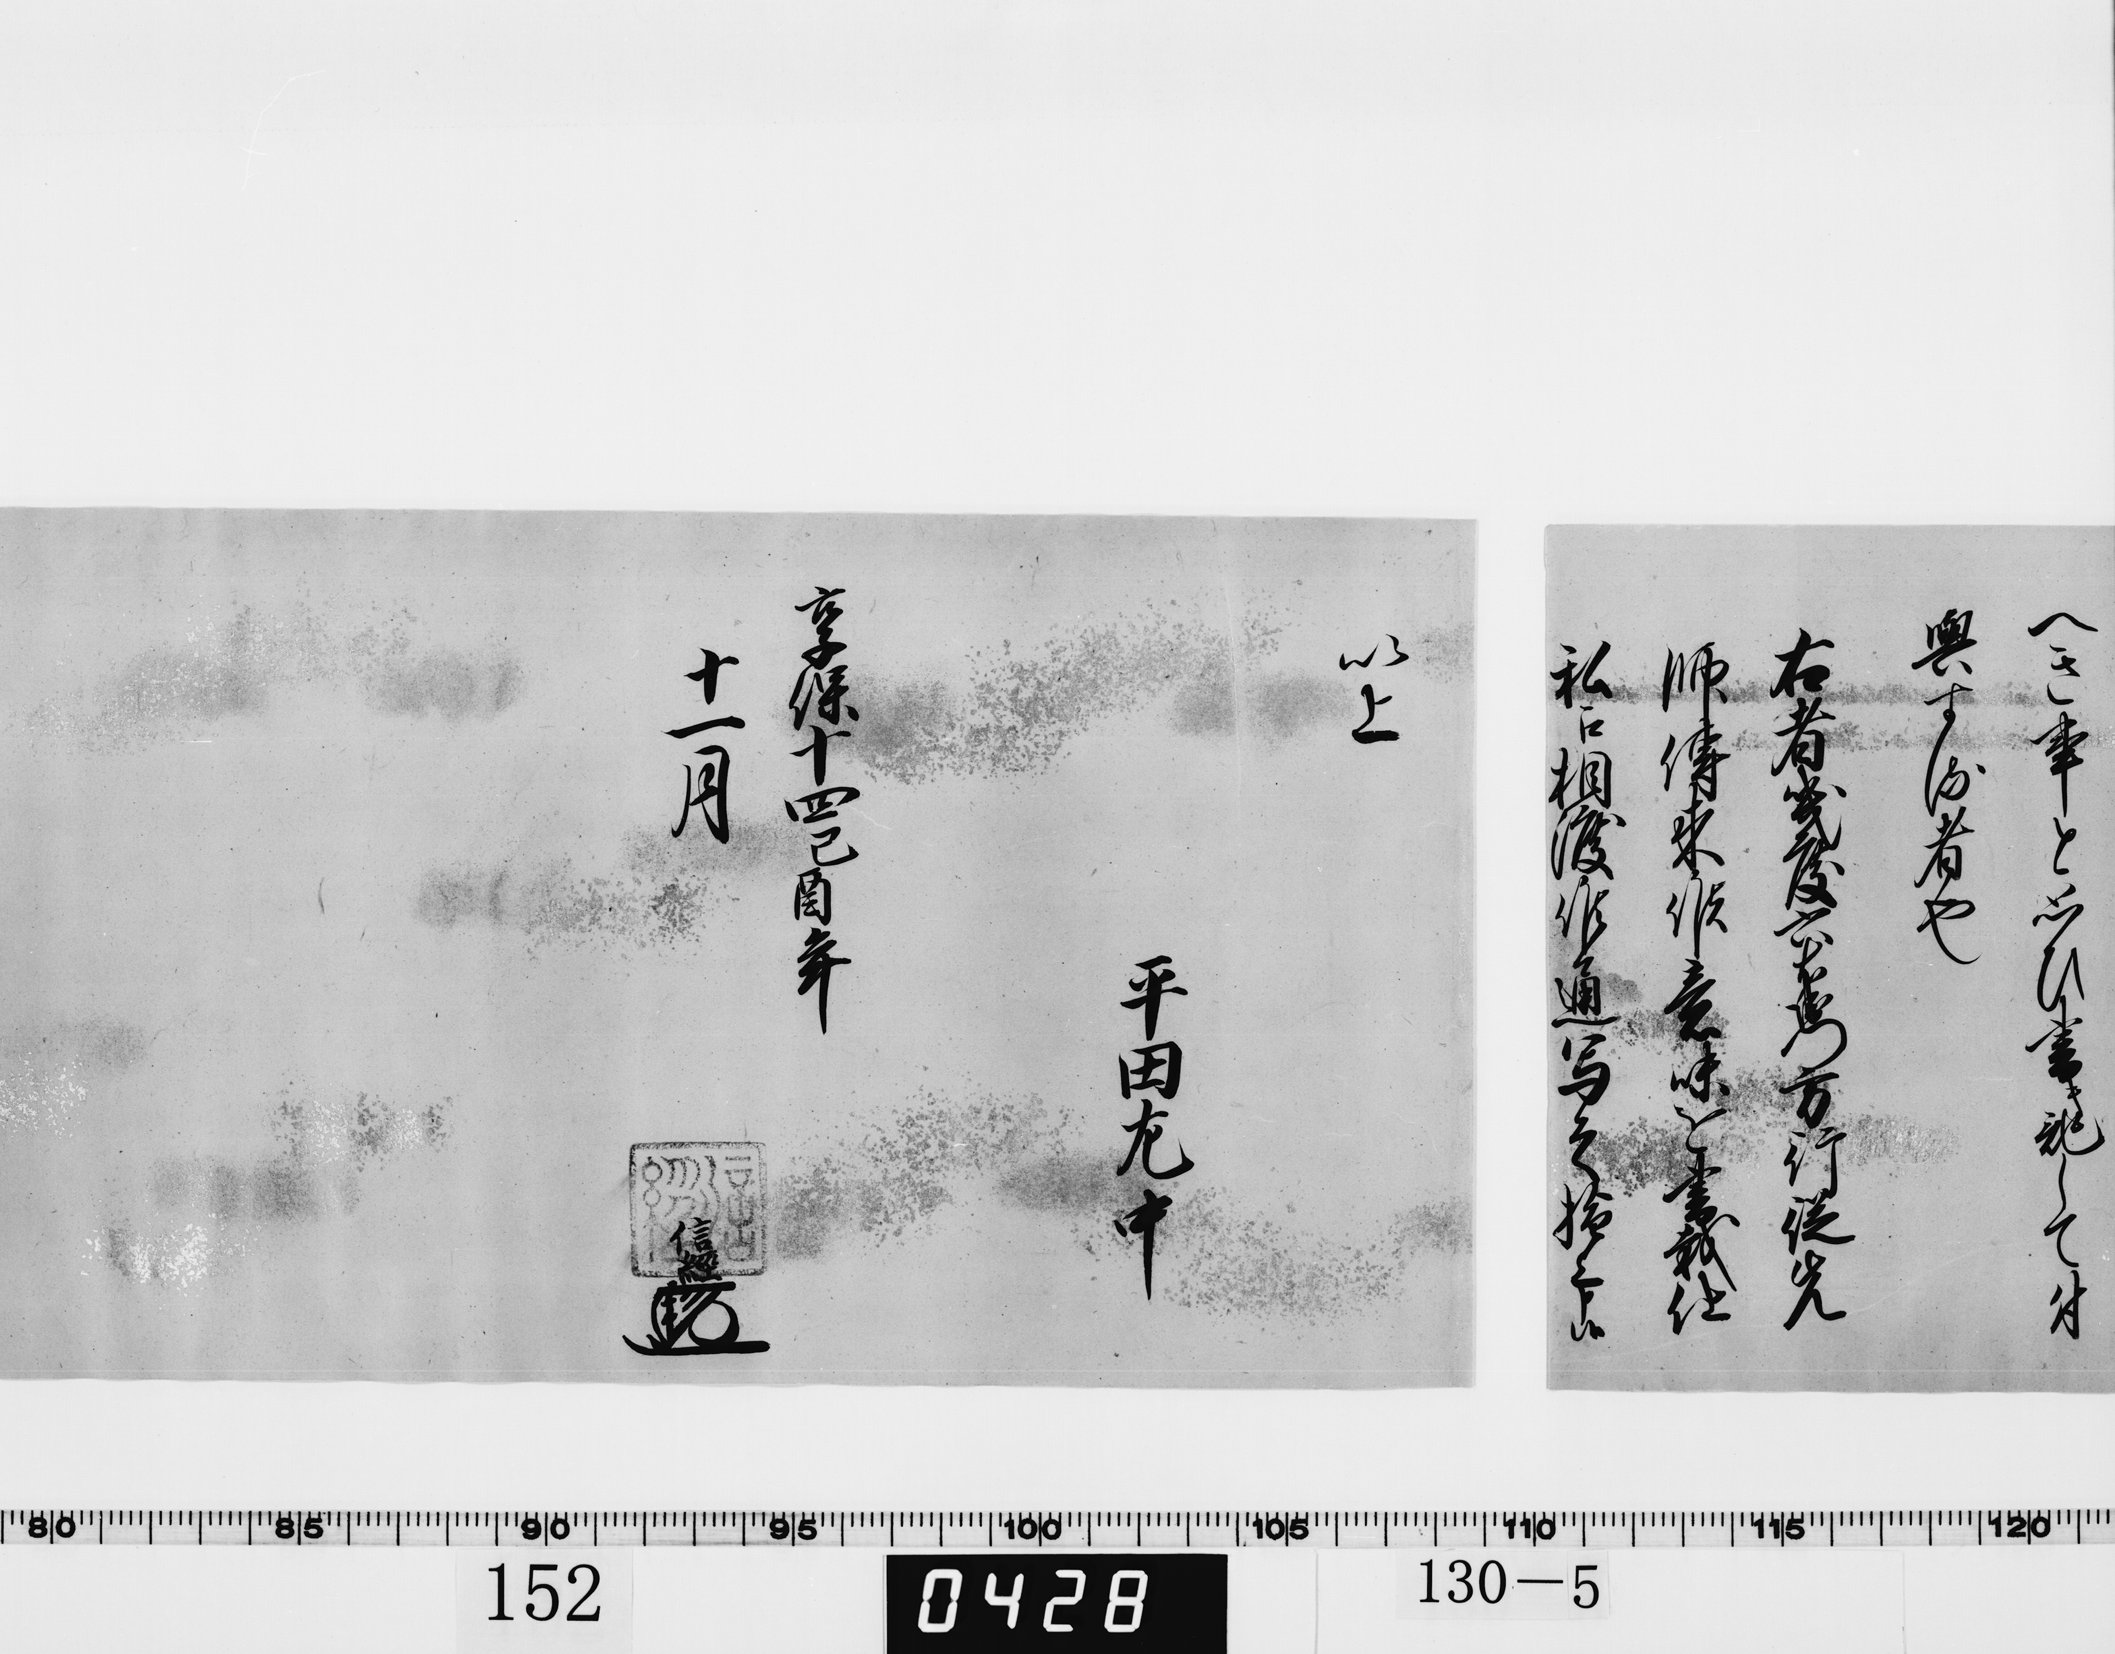 へき事と思ひ書き記して付
與する者也
右者幾度六左衛門方行従先
師傳来候意味を書載仕
私ニ相渡候通写之
以上
平田左中
享保十四己酉年
十一月
信經
80 85 90 95 100 105 110 115 120
152
0428
130-5